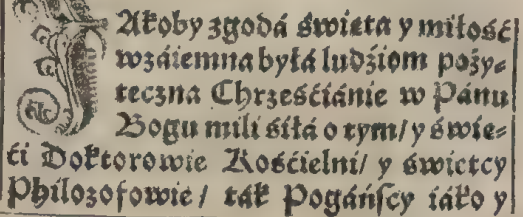 JAkoby zgodá święta y miłość
wzáiemna byłá ludźiom poży⸗
teczna Chrześćiánie w Pánu
Bogu mili śiłá o tym/ y świe⸗
ći Doktorowie Kośćielni/ y świetcy
Philozofowie/ ták Pogáńscy iáko y